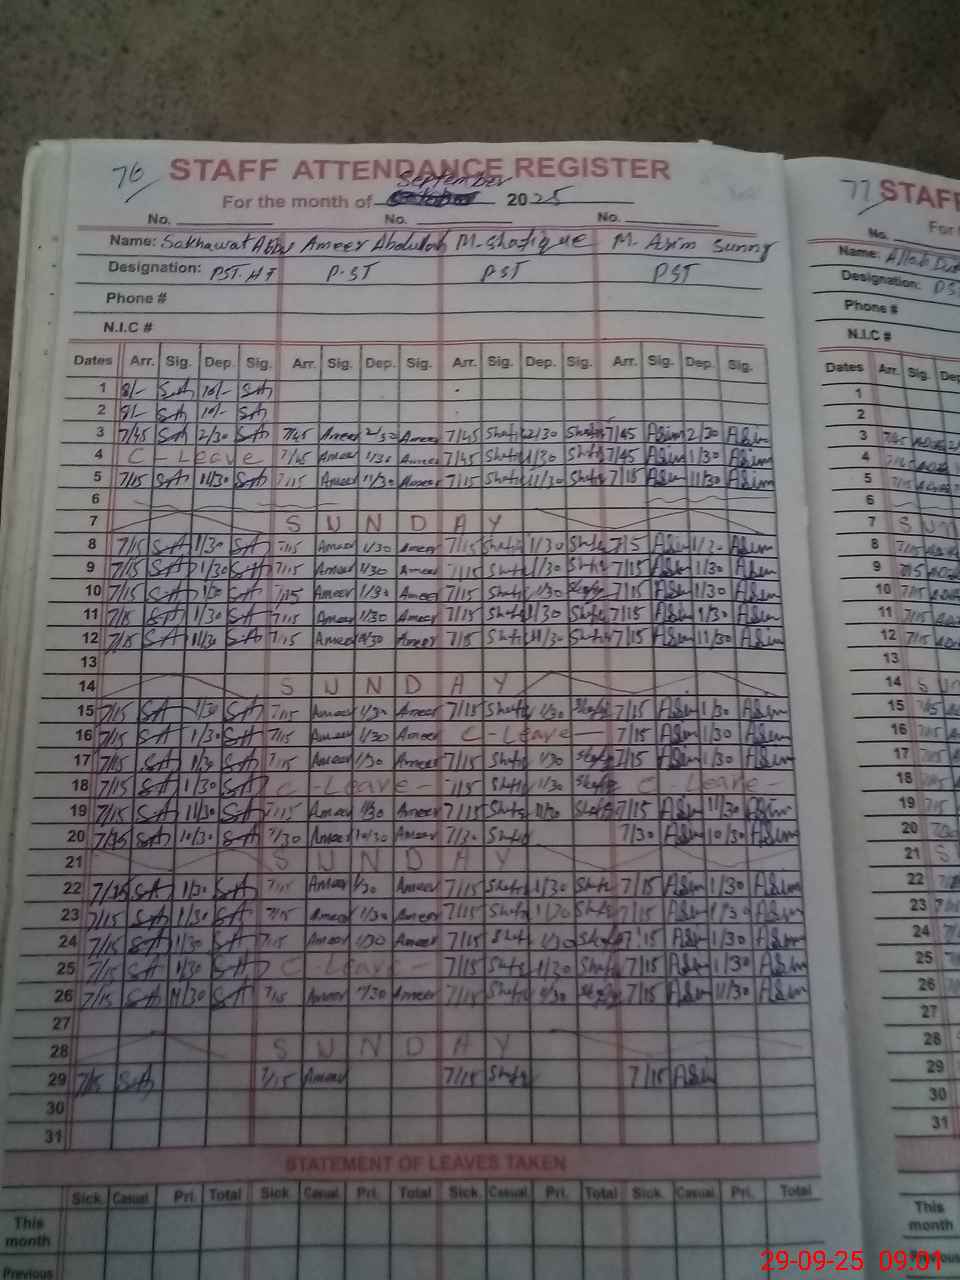 76 STAFF ATTENDANCE REGISTER
September
For the month of 2025
No. No. No.
Name: Sakhawat Ameer Abdullah M. Shafique M. Asim Sunny
Designation: PST. PST PST PST
Phone #
N.I.C #
Dates Arr. Sig. Dep. Sig. Arr. Sig. Dep. Sig. Arr. Sig. Dep. Sig. Arr. Sig. Dep. Sig.
1 8/- SA 10/- SA
2 8/- SA 10/- SA
3 7/45 SA 2/30 SA 7/45 Ameer 2/30 Ameer 7/45 Shafi 2/30 Shafi 7/45 Asim 2/30 Asim
4 C - Leave 7/45 Ameer 1/30 Ameer 7/45 Shafi 1/30 Shafi 7/45 Asim 1/30 Asim
5 7/15 SA 11/30 SA 7/15 Ameer 11/30 Ameer 7/15 Shafi 11/30 Shafi 7/15 Asim 11/30 Asim
6
7 SUNDAY
8 7/15 SA 1/30 SA 7/15 Ameer 1/30 Ameer 7/15 Shafi 1/30 Shafi Asim Asim
9 7/15 SA 1/30 SA 7/15 Ameer 1/30 Ameer 7/15 Shafi 1/30 Shafi 7/15 Asim 1/30 Asim
10 7/15 SA 1/30 SA 7/15 Ameer 1/30 Ameer 7/15 Shafi 1/30 Shafi 7/15 Asim 1/30 Asim
11 7/15 SA 1/30 SA 7/15 Ameer 1/30 Ameer 7/15 Shafi 1/30 Shafi 7/15 Asim 1/30 Asim
12 7/15 SA 11/30 SA 7/15 Ameer 11/30 Ameer 7/15 Shafi 11/30 Shafi 7/15 Asim 11/30 Asim
13
14 SUNDAY
15 7/15 SA 1/30 SA 7/15 Ameer 1/30 Ameer 7/15 Shafi 1/30 Shafi 7/15 Asim 1/30 Asim
16 7/15 SA 1/30 SA 7/15 Ameer 1/30 Ameer C - Leave - 7/15 Asim 1/30 Asim
17 7/15 SA 1/30 SA 7/15 Ameer 1/30 Ameer 7/15 Shafi 1/30 Shafi 7/15 Asim 1/30 Asim
18 7/15 SA 1/30 SA C - Leave - 7/15 Shafi 1/30 Shafi C - Leave -
19 7/15 SA 11/30 SA 7/15 Ameer 11/30 Ameer 7/15 Shafi 11/30 Shafi 7/15 Asim 11/30 Asim
20 SA 10/30 SA 7/30 Ameer 10/30 Ameer 7/30 Shafi 7/30 Asim 10/30 Asim
21 SUNDAY
22 7/15 SA 1/30 SA 7/15 Ameer 1/30 Ameer 7/15 Shafi 1/30 Shafi 7/15 Asim 1/30 Asim
23 7/15 SA 1/30 SA 7/15 Ameer 1/30 Ameer 7/15 Shafi 1/30 Shafi 7/15 Asim 1/30 Asim
24 7/15 SA 1/30 SA 7/15 Ameer 1/30 Ameer 7/15 Shafi 1/30 Shafi 7/15 Asim 1/30 Asim
25 7/15 SA 1/30 SA C - Leave - 7/15 Shafi 1/30 Shafi 7/15 Asim 1/30 Asim
26 7/15 SA 11/30 SA 7/15 Ameer 11/30 Ameer 7/15 Shafi 11/30 Shafi 7/15 Asim 11/30 Asim
27
28 SUNDAY
29 7/15 SA 7/15 Ameer 7/15 Shafi 7/15 Asim
30
31
STATEMENT OF LEAVES TAKEN
Sick. Casual. Pri. Total Sick. Casual. Pri. Total Sick. Casual. Pri. Total Sick. Casual. Pri. Total
This month
Previous
77 STAFF
For
No.
Name:
Designation: PS
Phone #
N.I.C #
Dates Arr. Sig. Dep
1
2
3 7/45
4
5 7/15
6
7 SUN
8 7/15
9 7/15
10 7/15
11 7/15
12 7/15
13
14 SU
15
16
17
18
19
20
21 S
22
23
24
25
26
27
28
29
30
31
This month
Previous
29-09-25 09:01